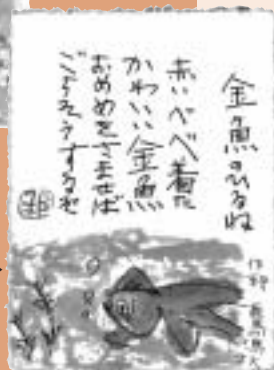 金魚のひるね
赤いべべ着た
かわいい金魚
おめめをさませば
ごちそうするぞ
作詞 鹿島鳴秋